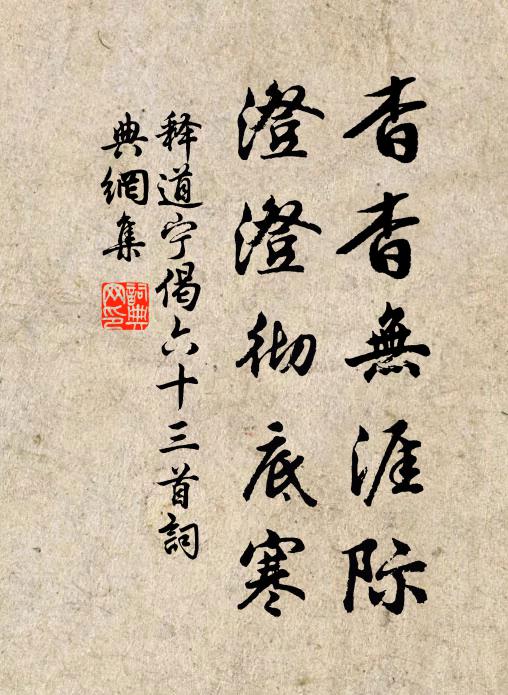 杳杳無涯际
澄澄彻底寒
释道宁偈六十三首詞
典網集
詞典
网印